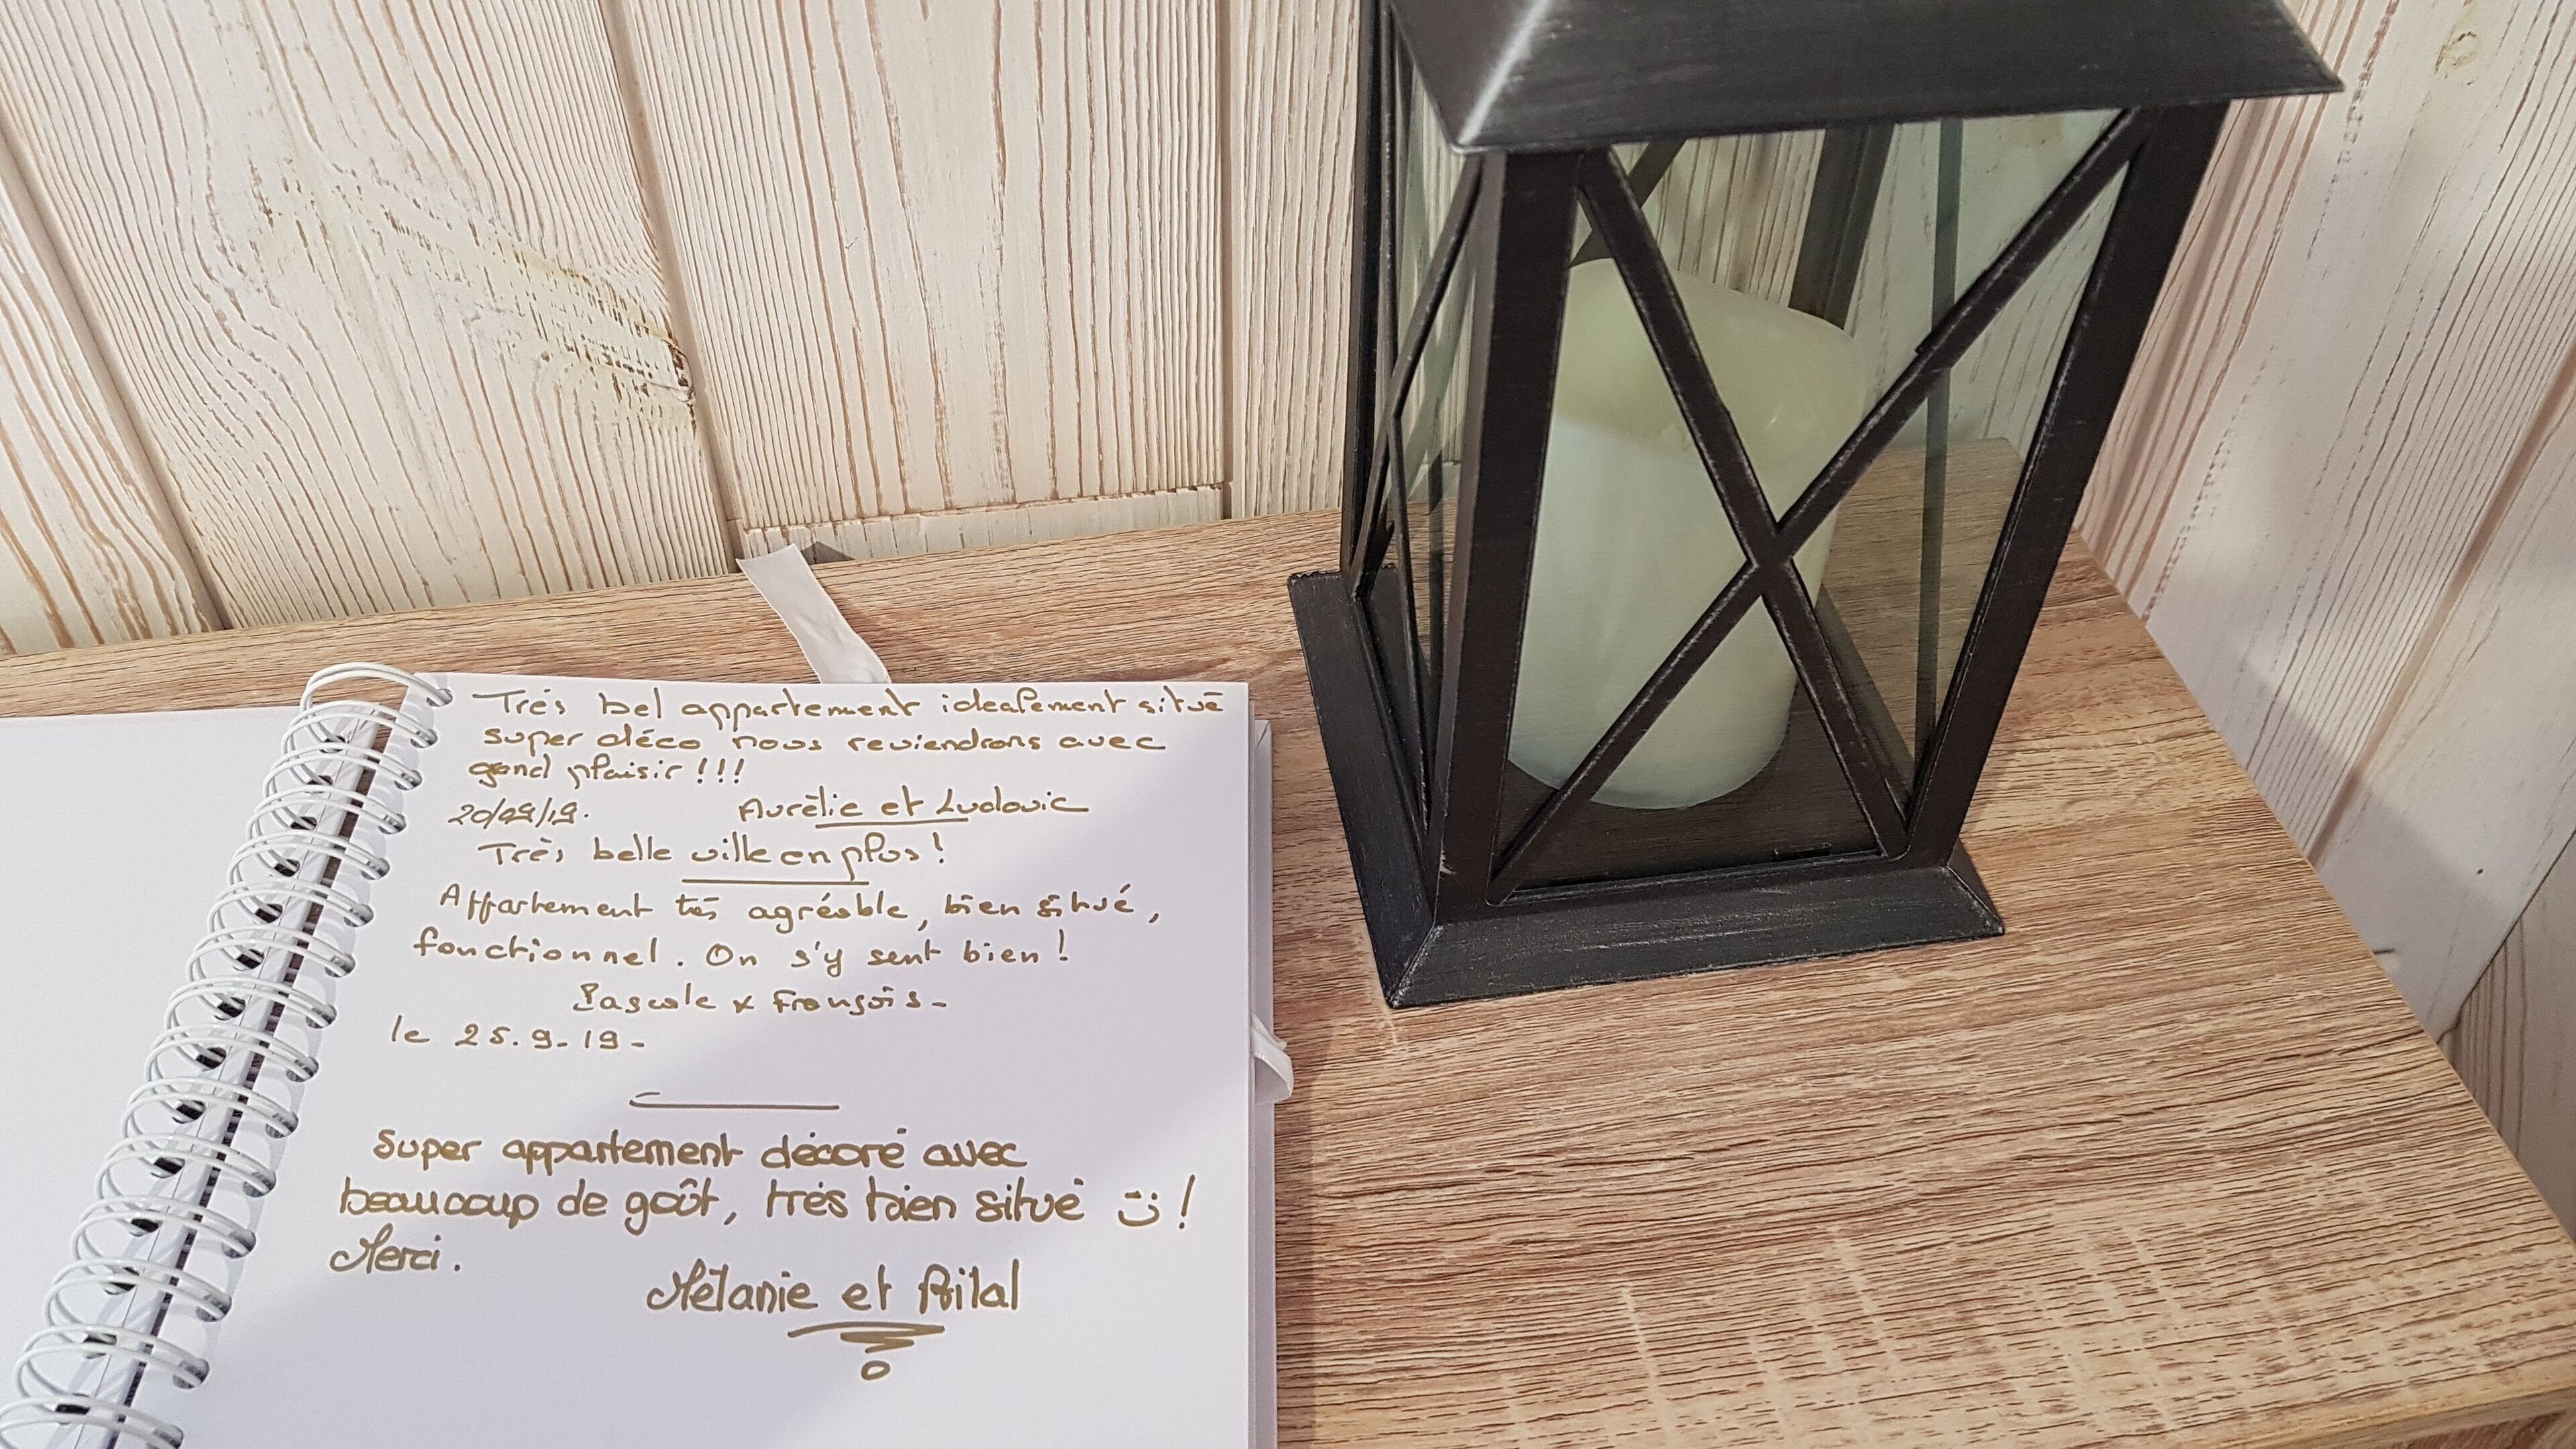 Très bel appartement idealement situé
super déco nous reviendrons avec
gand plaisir !!!
20/09/19. Aurèlie et Ludovic
Très belle ville en plus !
Appartement tès agréable, bien situé,
fonctionnel. On s'y sent bien !
Pascale & François -
le 25.9.19 -
Super appartement décoré avec
beaucoup de goût, très bien situé :) !
Merci.
Mélanie et Bilal